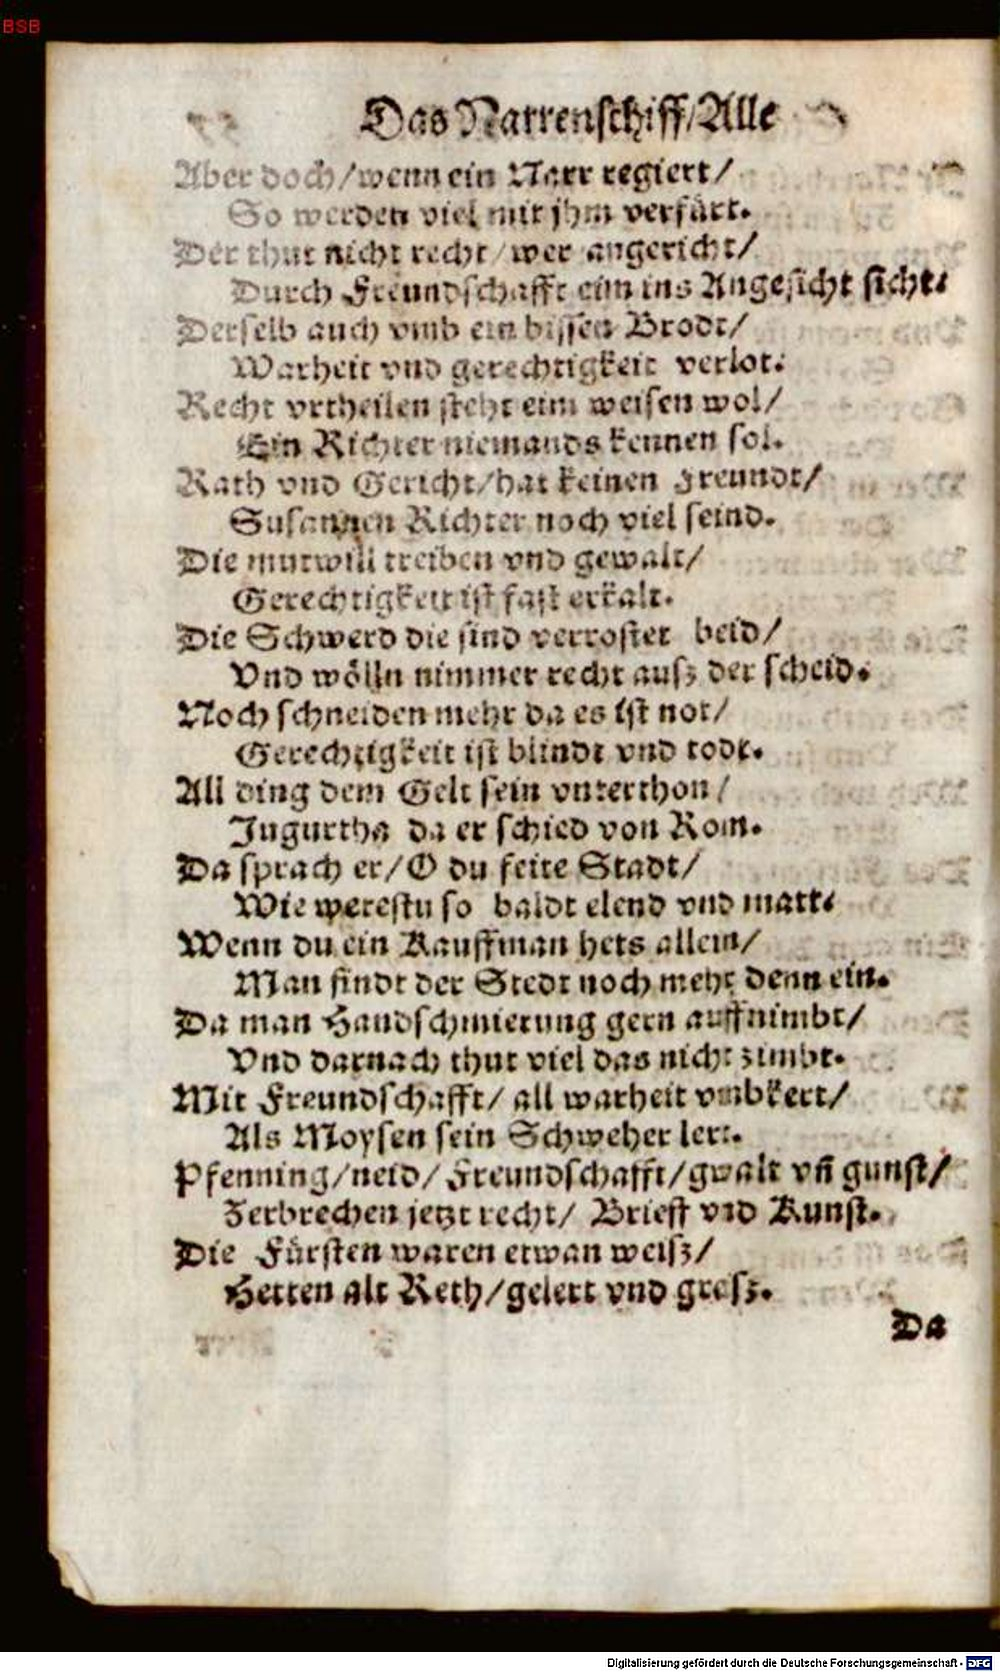 BSB
Das Narrenschiff/Alle
Aber doch/wenn ein Narr regiert/
So werden viel mit jhm verfürt.
Der thut nicht recht/wer angericht/
Durch Freundschafft eim ins Angesicht sicht.
Derselb auch vmb ein bissen Brodt/
Warheit vnd gerechtigkeit verlot.
Recht vrtheilen steht eim weisen wol/
Ein Richter niemands kennen sol.
Rath vnd Gericht/hat keinen Freundt/
Susannen Richter noch viel seind.
Die mutwill treiben vnd gewalt/
Gerechtigkeit ist fast erkalt.
Die Schwerd die sind verrostet beid/
Vnd wölln nimmer recht ausz der scheid.
Noch schneiden mehr da es ist not/
Gerechtigkeit ist blindt vnd todt.
All ding dem Gelt sein vnterthon/
Jugurtha da er schied von Rom.
Da sprach er/O du feite Stadt/
Wie werestu so baldt elend vnd matt.
Wenn du ein Kauffman hets allein/
Man findt der Stedt noch mehr denn ein.
Da man Handschmierung gern auffnimbt/
Vnd darnach thut viel das nicht zimbt.
Mit Freundschafft/ all warheit vmbkert/
Als Moysen sein Schweher lert.
Pfenning/neid/Freundschafft/gwalt vñ gunst/
Zerbrechen jetzt recht/ Brieff vnd Kunst.
Die Fürsten waren etwan weisz/
Hetten alt Reth/gelert vnd gresz.
Da
Digitalisierung gefördert durch die Deutsche Forschungsgemeinschaft - DFG